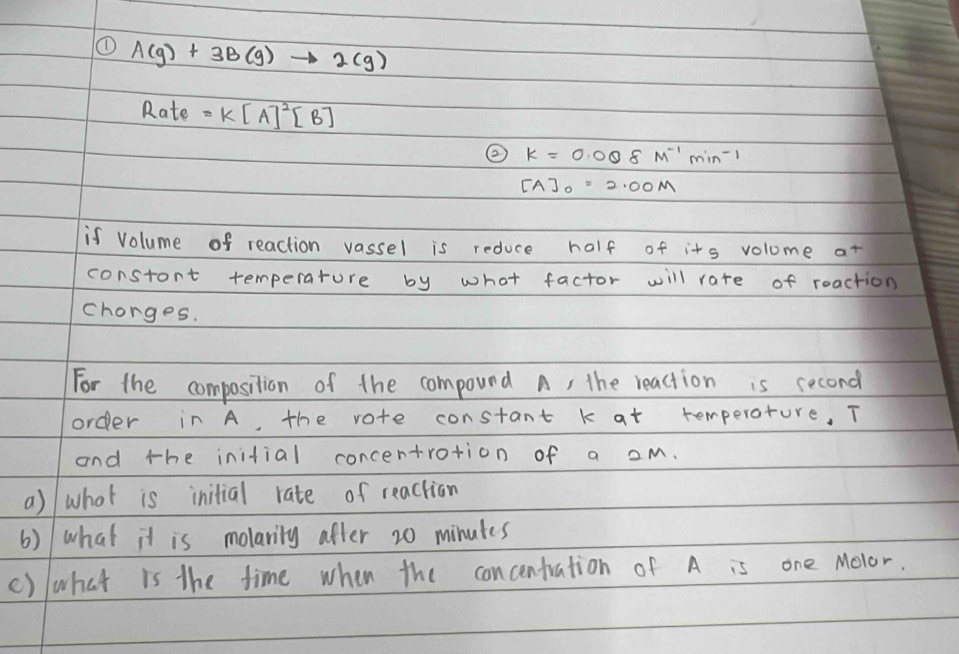 ① A(g) + 3B(g) → 2(g)
Rate = K[A]²[B]
② k = 0.008 M⁻¹ min⁻¹
[A]₀ = 2.00M
if volume of reaction vassel is reduce half of its volume at
constant temperature by what factor will rate of reaction
changes.
For the composition of the compound A, the reaction is second
order in A, the rate constant k at temperature, T
and the initial concentration of a 2M.
a) what is initial rate of reaction
b) what it is molarity after 20 minutes
c) what is the time when the concentration of A is one Molar.